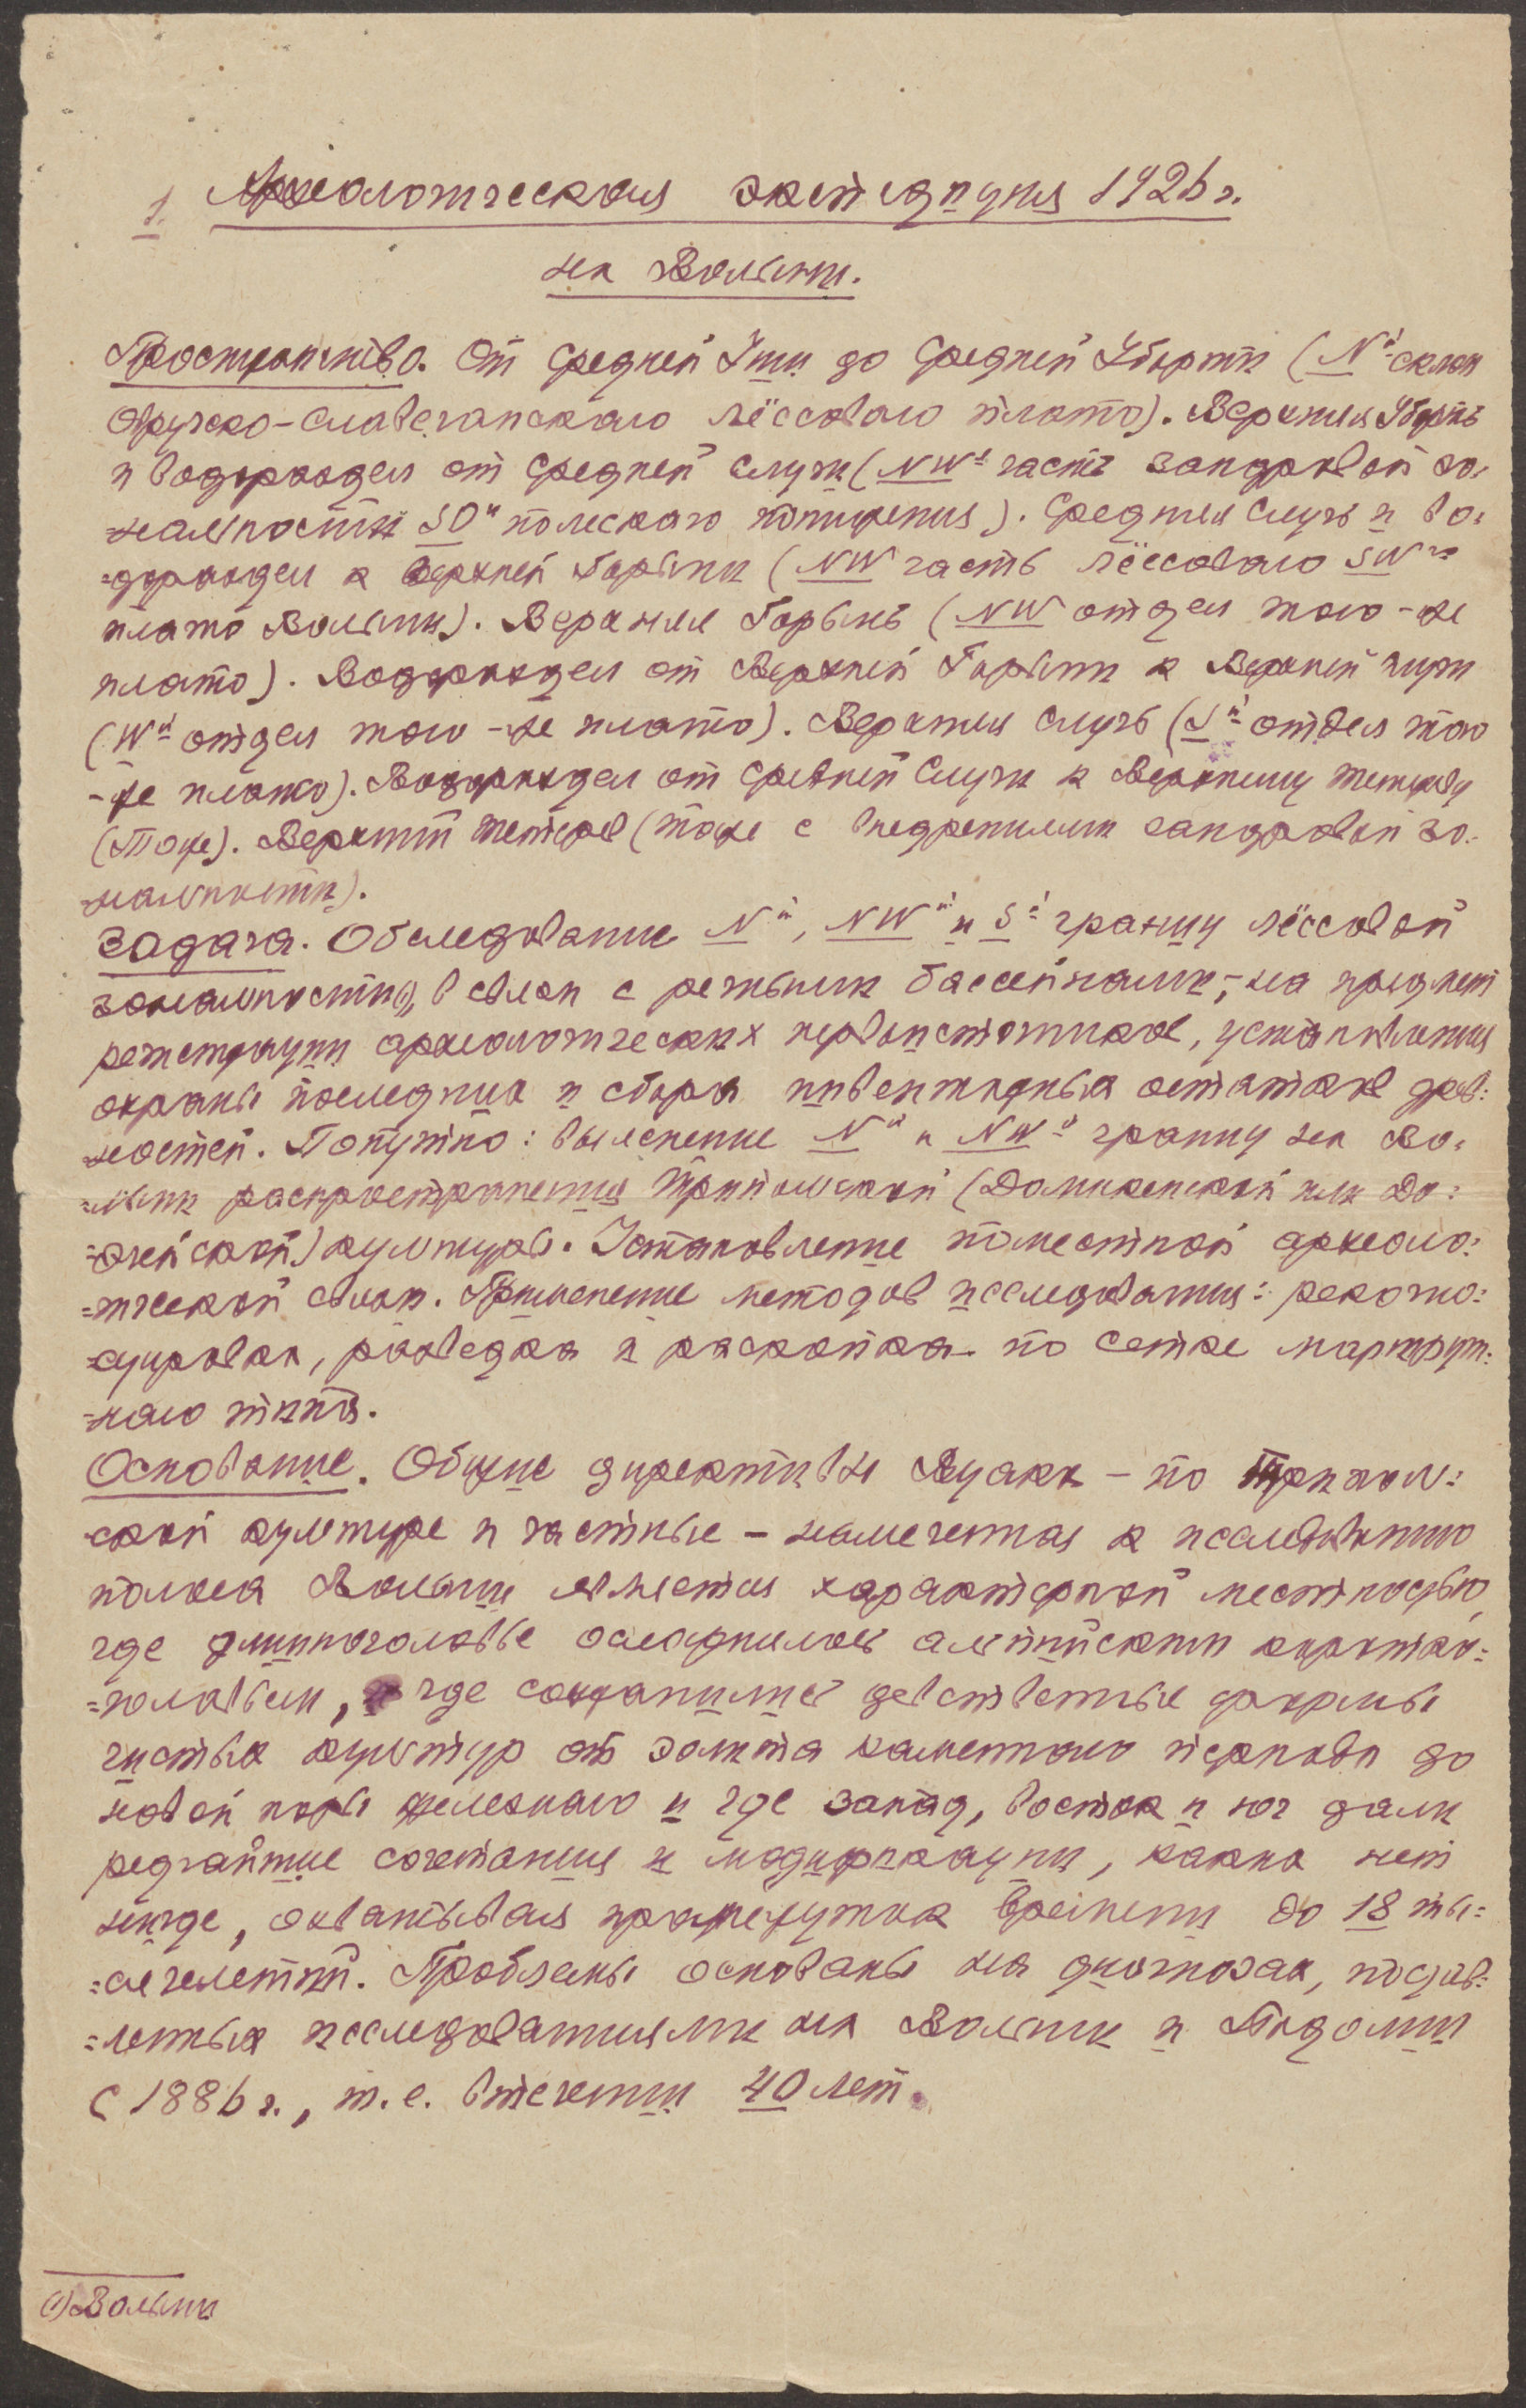 1. Археологическая экспедиция 1926 г.
на Волыни.
Пространство. От Средней Уши до Средней Убырти (Nй склон
Овручско-Словечанскаго лёссоваго плато). Верхняя Убырть
и водораздел от Средней Случи (NWя часть зандровой зо-
=нальности SOи полескаго понижения). Средняя Случь и во=
=дораздел к Верхней Горыни (NW часть лёссоваго SWго
плато Волыни). Верхняя Горынь (NW отдел того-же
плато). Водораздел от Верхней Горыни к Верхней Случи
(Wй отдел того-же плато). Верхняя Случь (Sй отдел того
-же плато). Водораздел от Средней Случи к Верхнему Тетереву
(Тоже). Верхний Тетерев (тоже с внедрениями зандровой зо-
нальности).
Задача. Обследование Nй, NWй и Sй границ лёссовой
зональности (1), в связи с речными бассейнами, - на предмет
регистрации археологических первоисточников, установления
охраны последних и сбора инвентарных остатков древ=
ностей. Попутно: выяснение Nй и NWй границ на Во=
=лыни распространения Трипольской (Домикенской или До=
=микенской) культуры. Установление поместной археоло=
=гической связи. Применение методов исследования: рекогно=
=сцировка, разведка и раскопка по сетке маршрут=
=наго типа.
Основание. Общие директивы Вуака - по Триполь=
ской культуре и частные - намеченная к исследованию
полоса Волыни является характерной местностью,
где длинноголовье осложнилось альпийским коротко=
=головьем, и где сохранились девственные формы
чистых культур от эолита каменнаго периода до
новой поры железнаго и где запад, восток и юг дали
редчайшие сочетания и модификации, каких нет
нигде, охватывая промежуток времени до 18 ты=
=сячелетий. Проблемы основаны на диагнозах, поставл=
=ленных исследованиями на Волыни и Подолии
с 1886 г., т.е. втечении 40 лет.
(1) Волыни